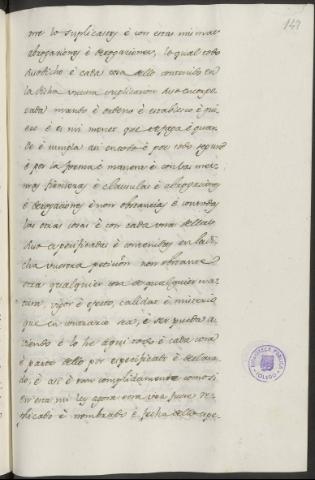 147
me lo suplicastes é con estas mismas
abrogaciones é derogaciones, lo qual todo
susodicho é cada cosa dello contenido en
la dicha vuestra suplicacion suso encorpo
rada mando é ordeno é establezco é quie
ro é es mi merced que se faga é guar
de é cumpla asi en todo é por todo segund
é por la forma é manera é con las mes
mas é clausulas é abrogaciones
é derogaciones é non obstancias é con todas
las otras cosas é con cada una dellas
suso especificadas é contenidas en la di
cha vuestra peticion non obstante
otra qualquier cosa de qualquier na
tura, vigor é efecto, calidad é misterio
que en contrario sea, é ser pueda a
viendo é lo he aqui todo é cada cosa
é parte dello por especificado é declara
do, é asi é tan complidamente como si
en esta mi ley agora otra vez fuese es
plicado é nombrado é fecha dello espe
BIBLIOTECA PUBLICA
TOLEDO